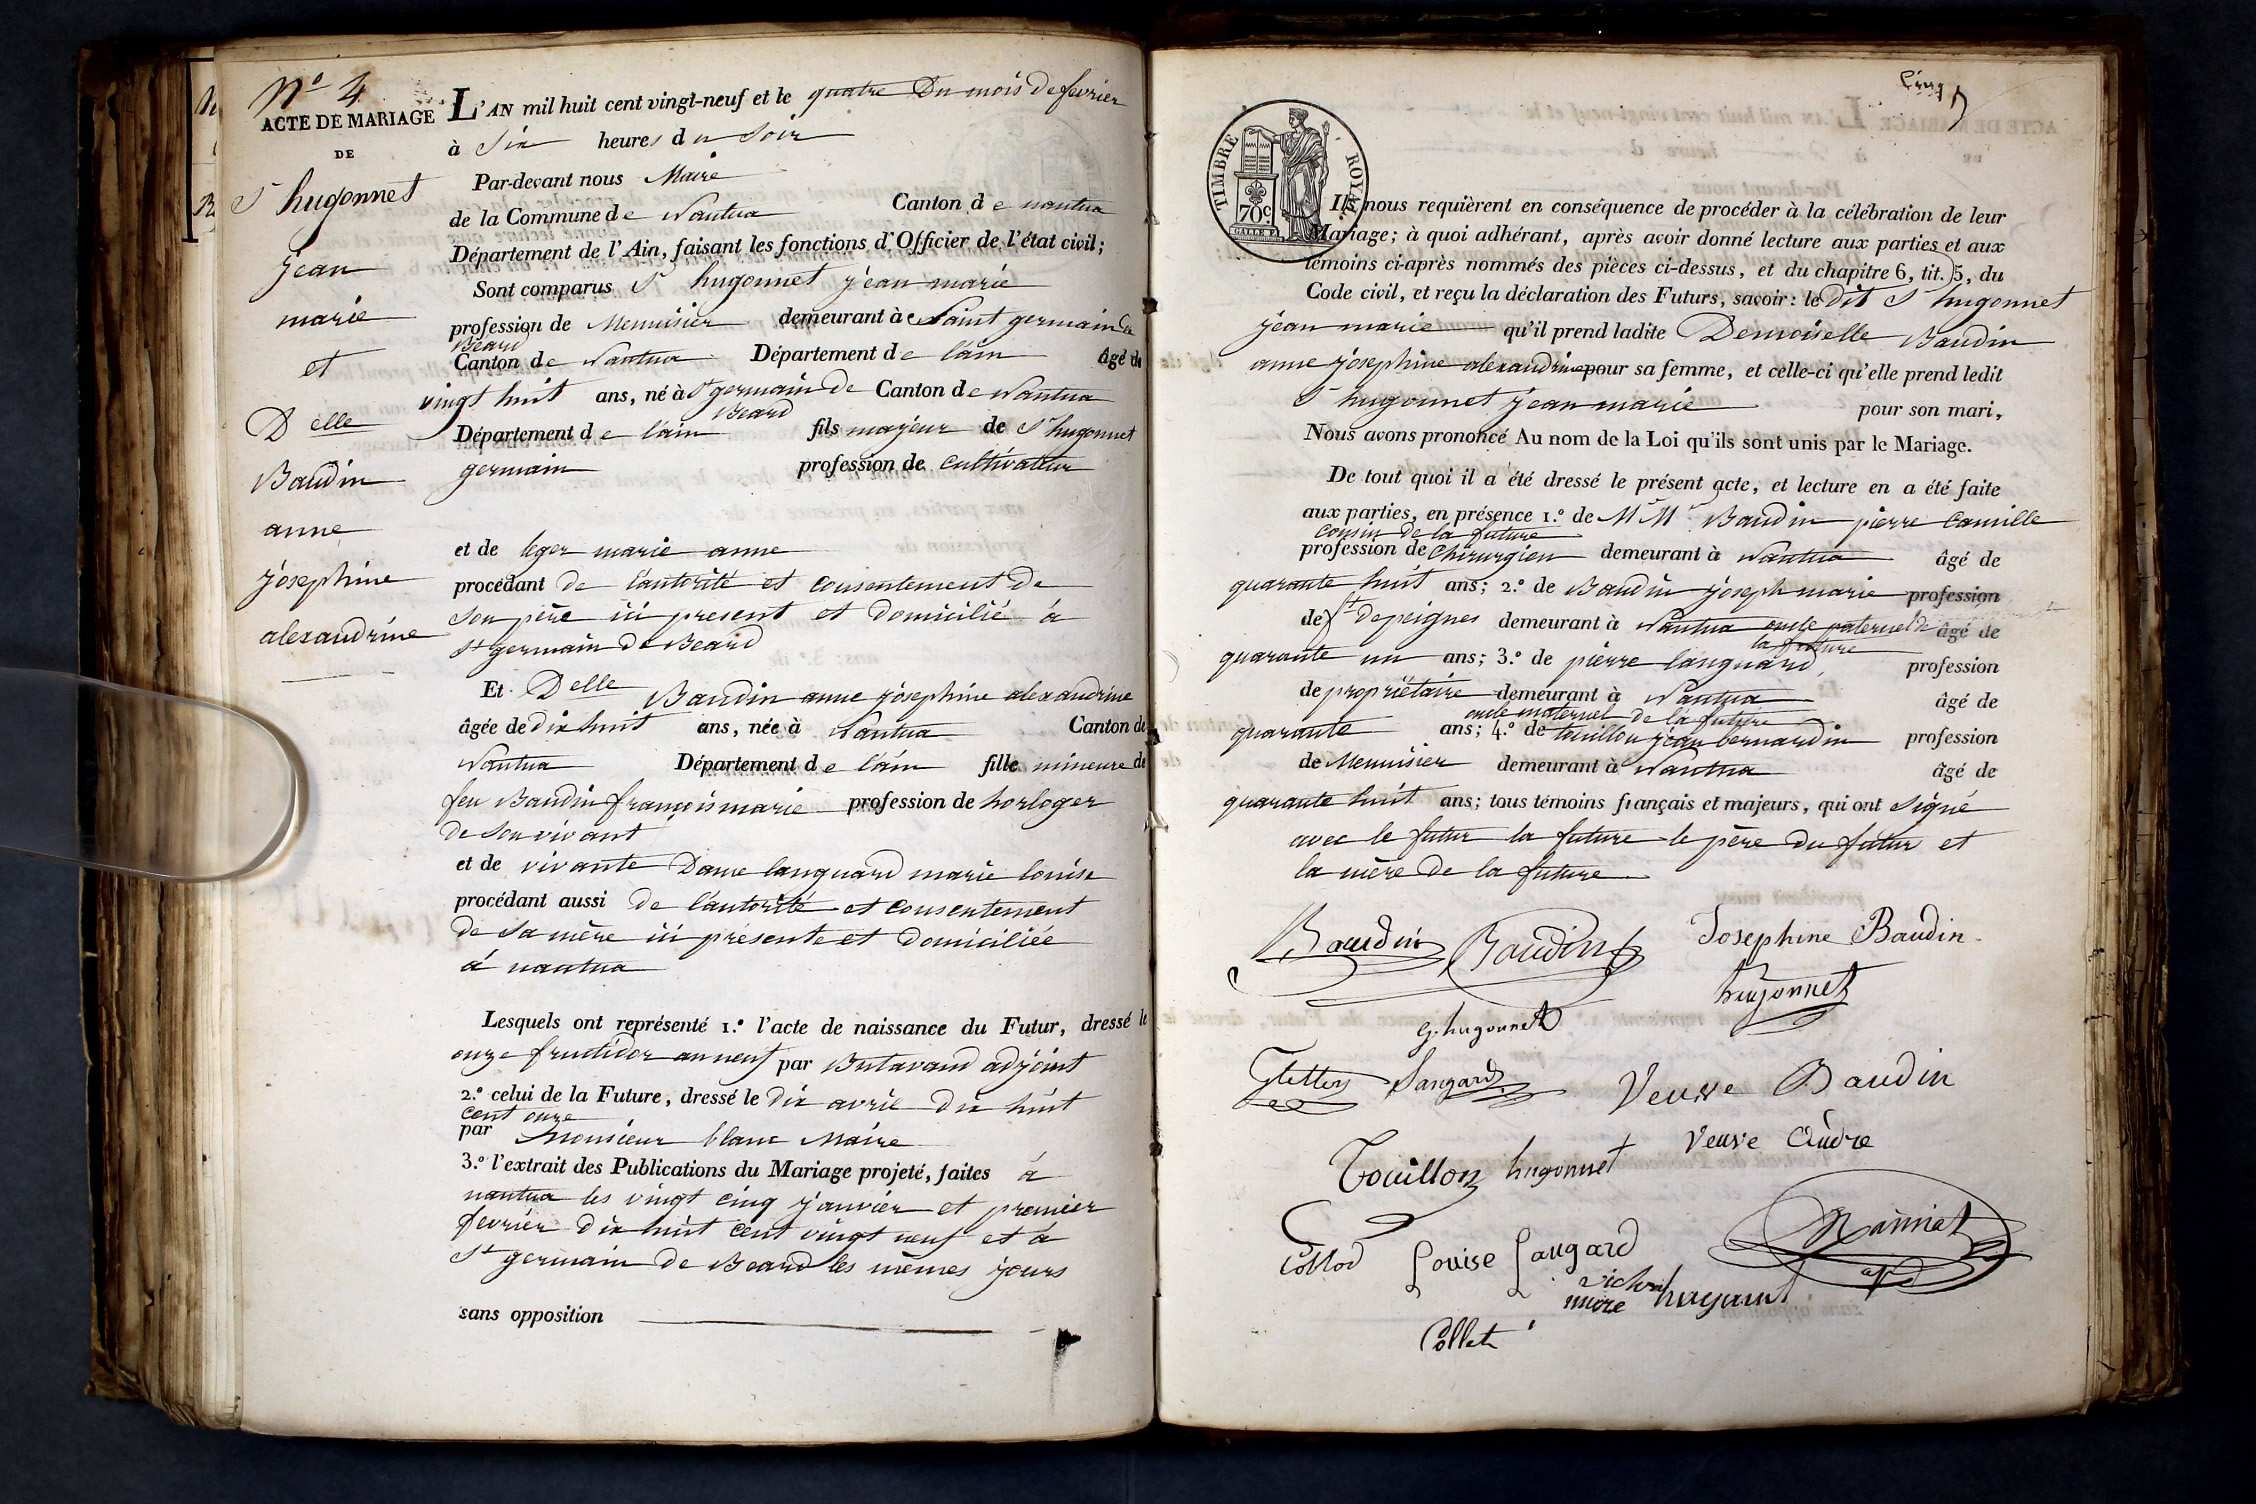 N° 4
ACTE DE MARIAGE
DE
Sr hugonnet
jean
marie
et
Delle
Baudin
anne
josephine
alexandrine
L'AN mil huit cent vingt-neuf et le quatre Du mois De fevrier
à Six heures du Soir
Par-devant nous Maire
de la Commune de Nantua Canton de nantua
Département de l'Ain, faisant les fonctions d'Officier de l'état civil;
Sont comparus Sr hugonnet jean marie
profession de Menuisier demeurant à Saint germain de
Beard
Canton de Nantua Département de l'ain âgé de
vingt huit ans, né à St germain de Canton de Nantua
Beard
Département de l'ain fils majeur de Sr hugonnet
germain profession de cultivateur
et de leger marie anne
procédant de l'autorité et consentement de
son père ici present et domicilié à
St germain de Beard
Et Delle Baudin anne josephine alexandrine
âgée de dix huit ans, née à Nantua Canton de
Nantua Département de l'ain fille mineure de
feu Baudin françois marie profession de horloger
de son vivant
et de vivante Dame languard marie louise
procédant aussi de l'autorité et consentement
de sa mère ici présente et domiciliée
à nantua
Lesquels ont représenté 1.° l'acte de naissance du Futur, dressé le
onze fructidor an neuf par Butavand adjoint
2.° celui de la Future, dressé le dix avril dix huit
cent onze
par Monsieur blanc Maire
3.° l'extrait des Publications du Mariage projeté, faites à
nantua les vingt cinq janvier et premier
fevrier dix huit cent vingt neuf et à
St germain de Beard les mêmes jours
sans opposition
Cinq
5
TIMBRE ROYAL
70c
Ils nous requièrent en conséquence de procéder à la célébration de leur
Mariage; à quoi adhérant, après avoir donné lecture aux parties et aux
témoins ci-après nommés des pièces ci-dessus, et du chapitre 6, tit. 5, du
Code civil, et reçu la déclaration des Futurs, savoir: le Dit Sr hugonnet
jean marie qu'il prend ladite Demoiselle Baudin
anne josephine alexandrine pour sa femme, et celle-ci qu'elle prend ledit
Sr hugonnet jean marie pour son mari,
Nous avons prononcé Au nom de la Loi qu'ils sont unis par le Mariage.
De tout quoi il a été dressé le présent acte, et lecture en a été faite
aux parties, en présence 1.° de Mr Mr Baudin pierre Camille
cousin de la future
profession de Chirurgien demeurant à Nantua âgé de
quarante huit ans; 2.° de Baudin joseph marie profession
de ft de peignes demeurant à Nantua oncle paternel de âgé de
la future
quarante un ans; 3.° de pierre languard, profession
de propriétaire demeurant à Nantua âgé de
oncle maternel de la future
quarante ans; 4.° de touillon jean bernardin profession
de Menuisier demeurant à Nantua âgé de
quarante huit ans; tous témoins français et majeurs, qui ont signé
avec le futur la future le père du futur et
la mère de la future
Baudin Baudin Josephine Baudin
hugonnet
g. hugonnet
Langard Veuve Baudin
Touillon hugonnet Veuve Andre
Collod Louise Langard
hugonnet
Collet